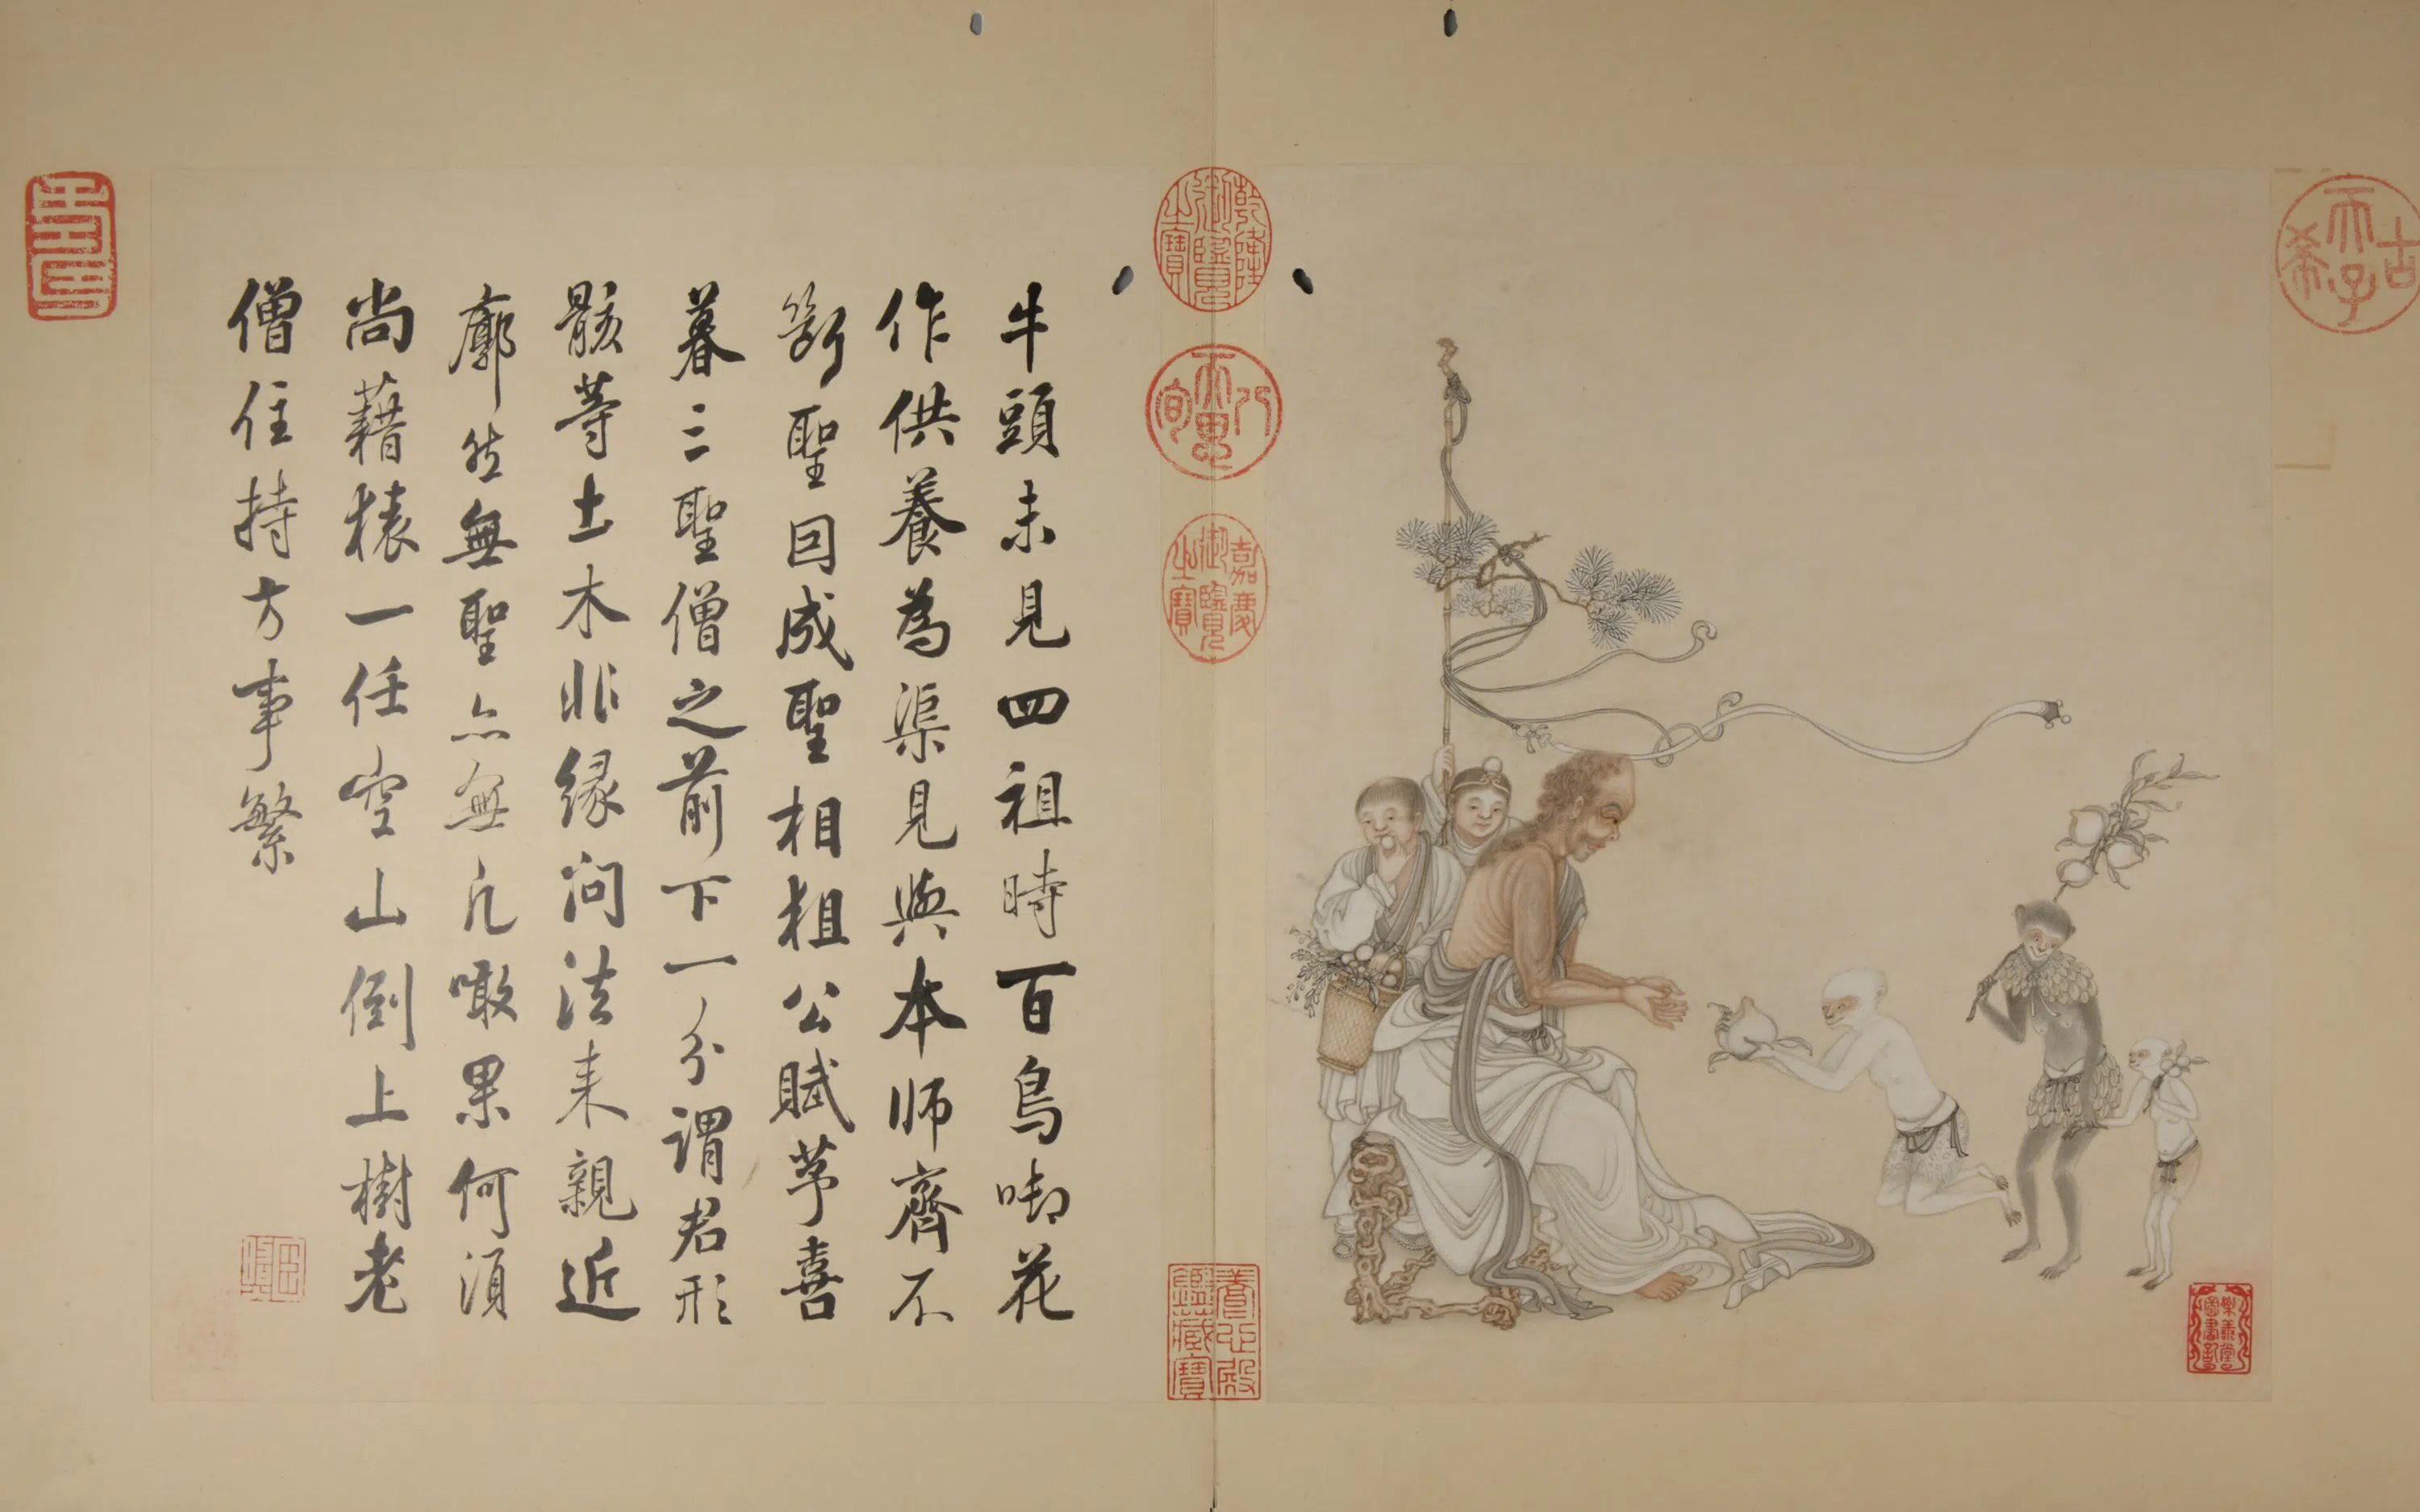 牛頭未見四祖時百鳥啣花
作供養為渠見與本師齊不
聖回成聖相粗公賦芧喜
暮三聖僧之前下一分謂君形
骸等土木非緣問法来親近
廓然無聖亦無凡噉果何須
尚藉榬一任空山倒上樹老
僧住持方事繁
乾隆御覽之寶
八徵耄念
嘉慶御覽之寶
養心殿鑑藏寶
古希天子
壽
樂善堂圖書記